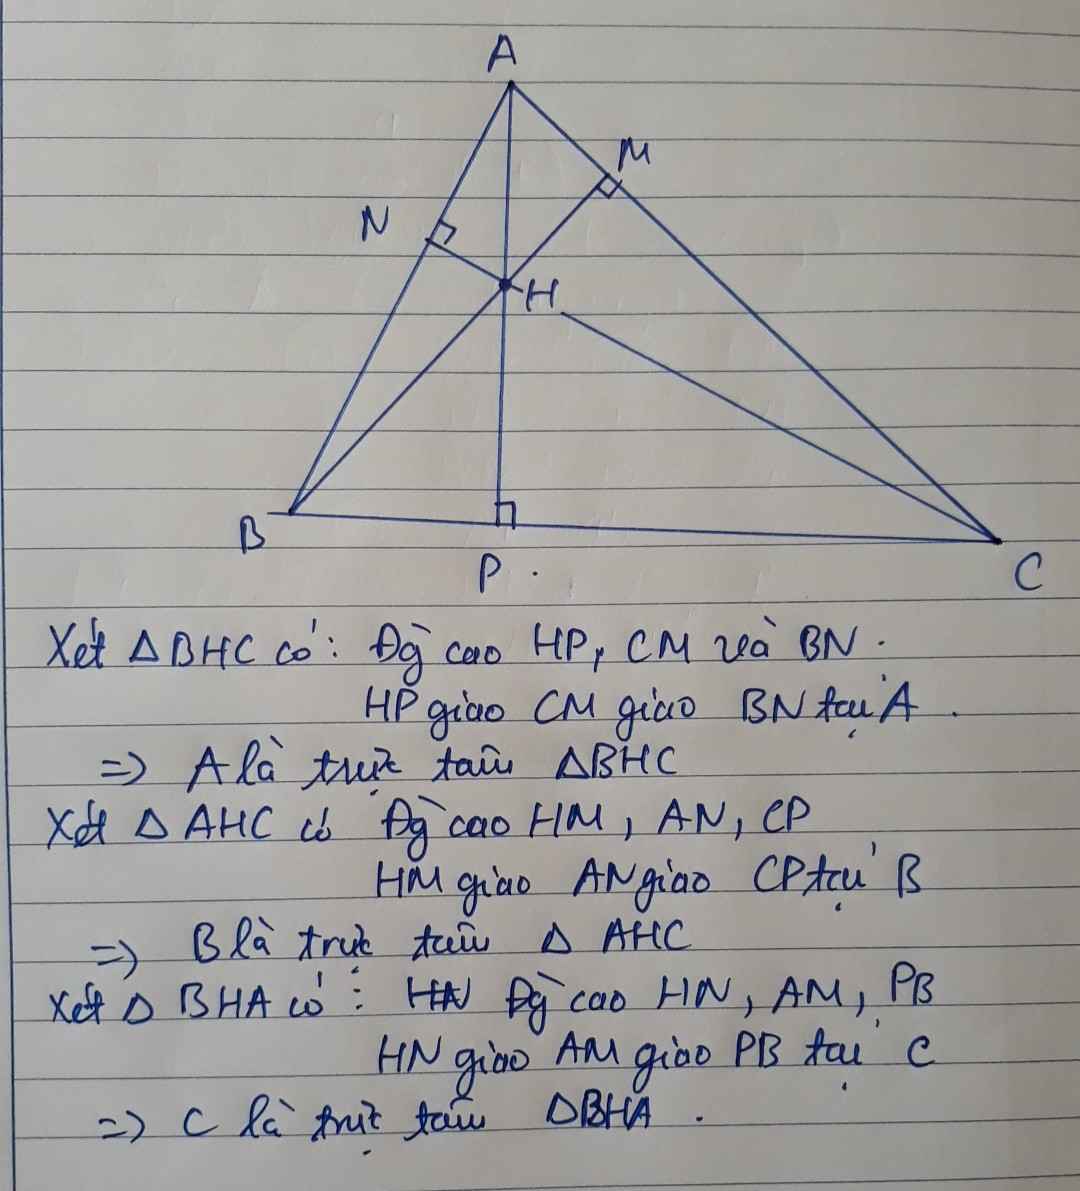 A
M
N
H
B
P .
C
Xét ΔBHC có: Đg̀ cao HP, CM và BN.
HP giao CM giao BN tại A.
=> A là trực tâm ΔBHC
Xét Δ AHC có Đg̀ cao HM, AN, CP
HM giao AN giao CP tại B
=> B là trực tâm Δ AHC
Xét Δ BHA có: HN Đg̀ cao HN, AM, PB
HN giao AM giao PB tại C
=> C là trực tâm ΔBHA.